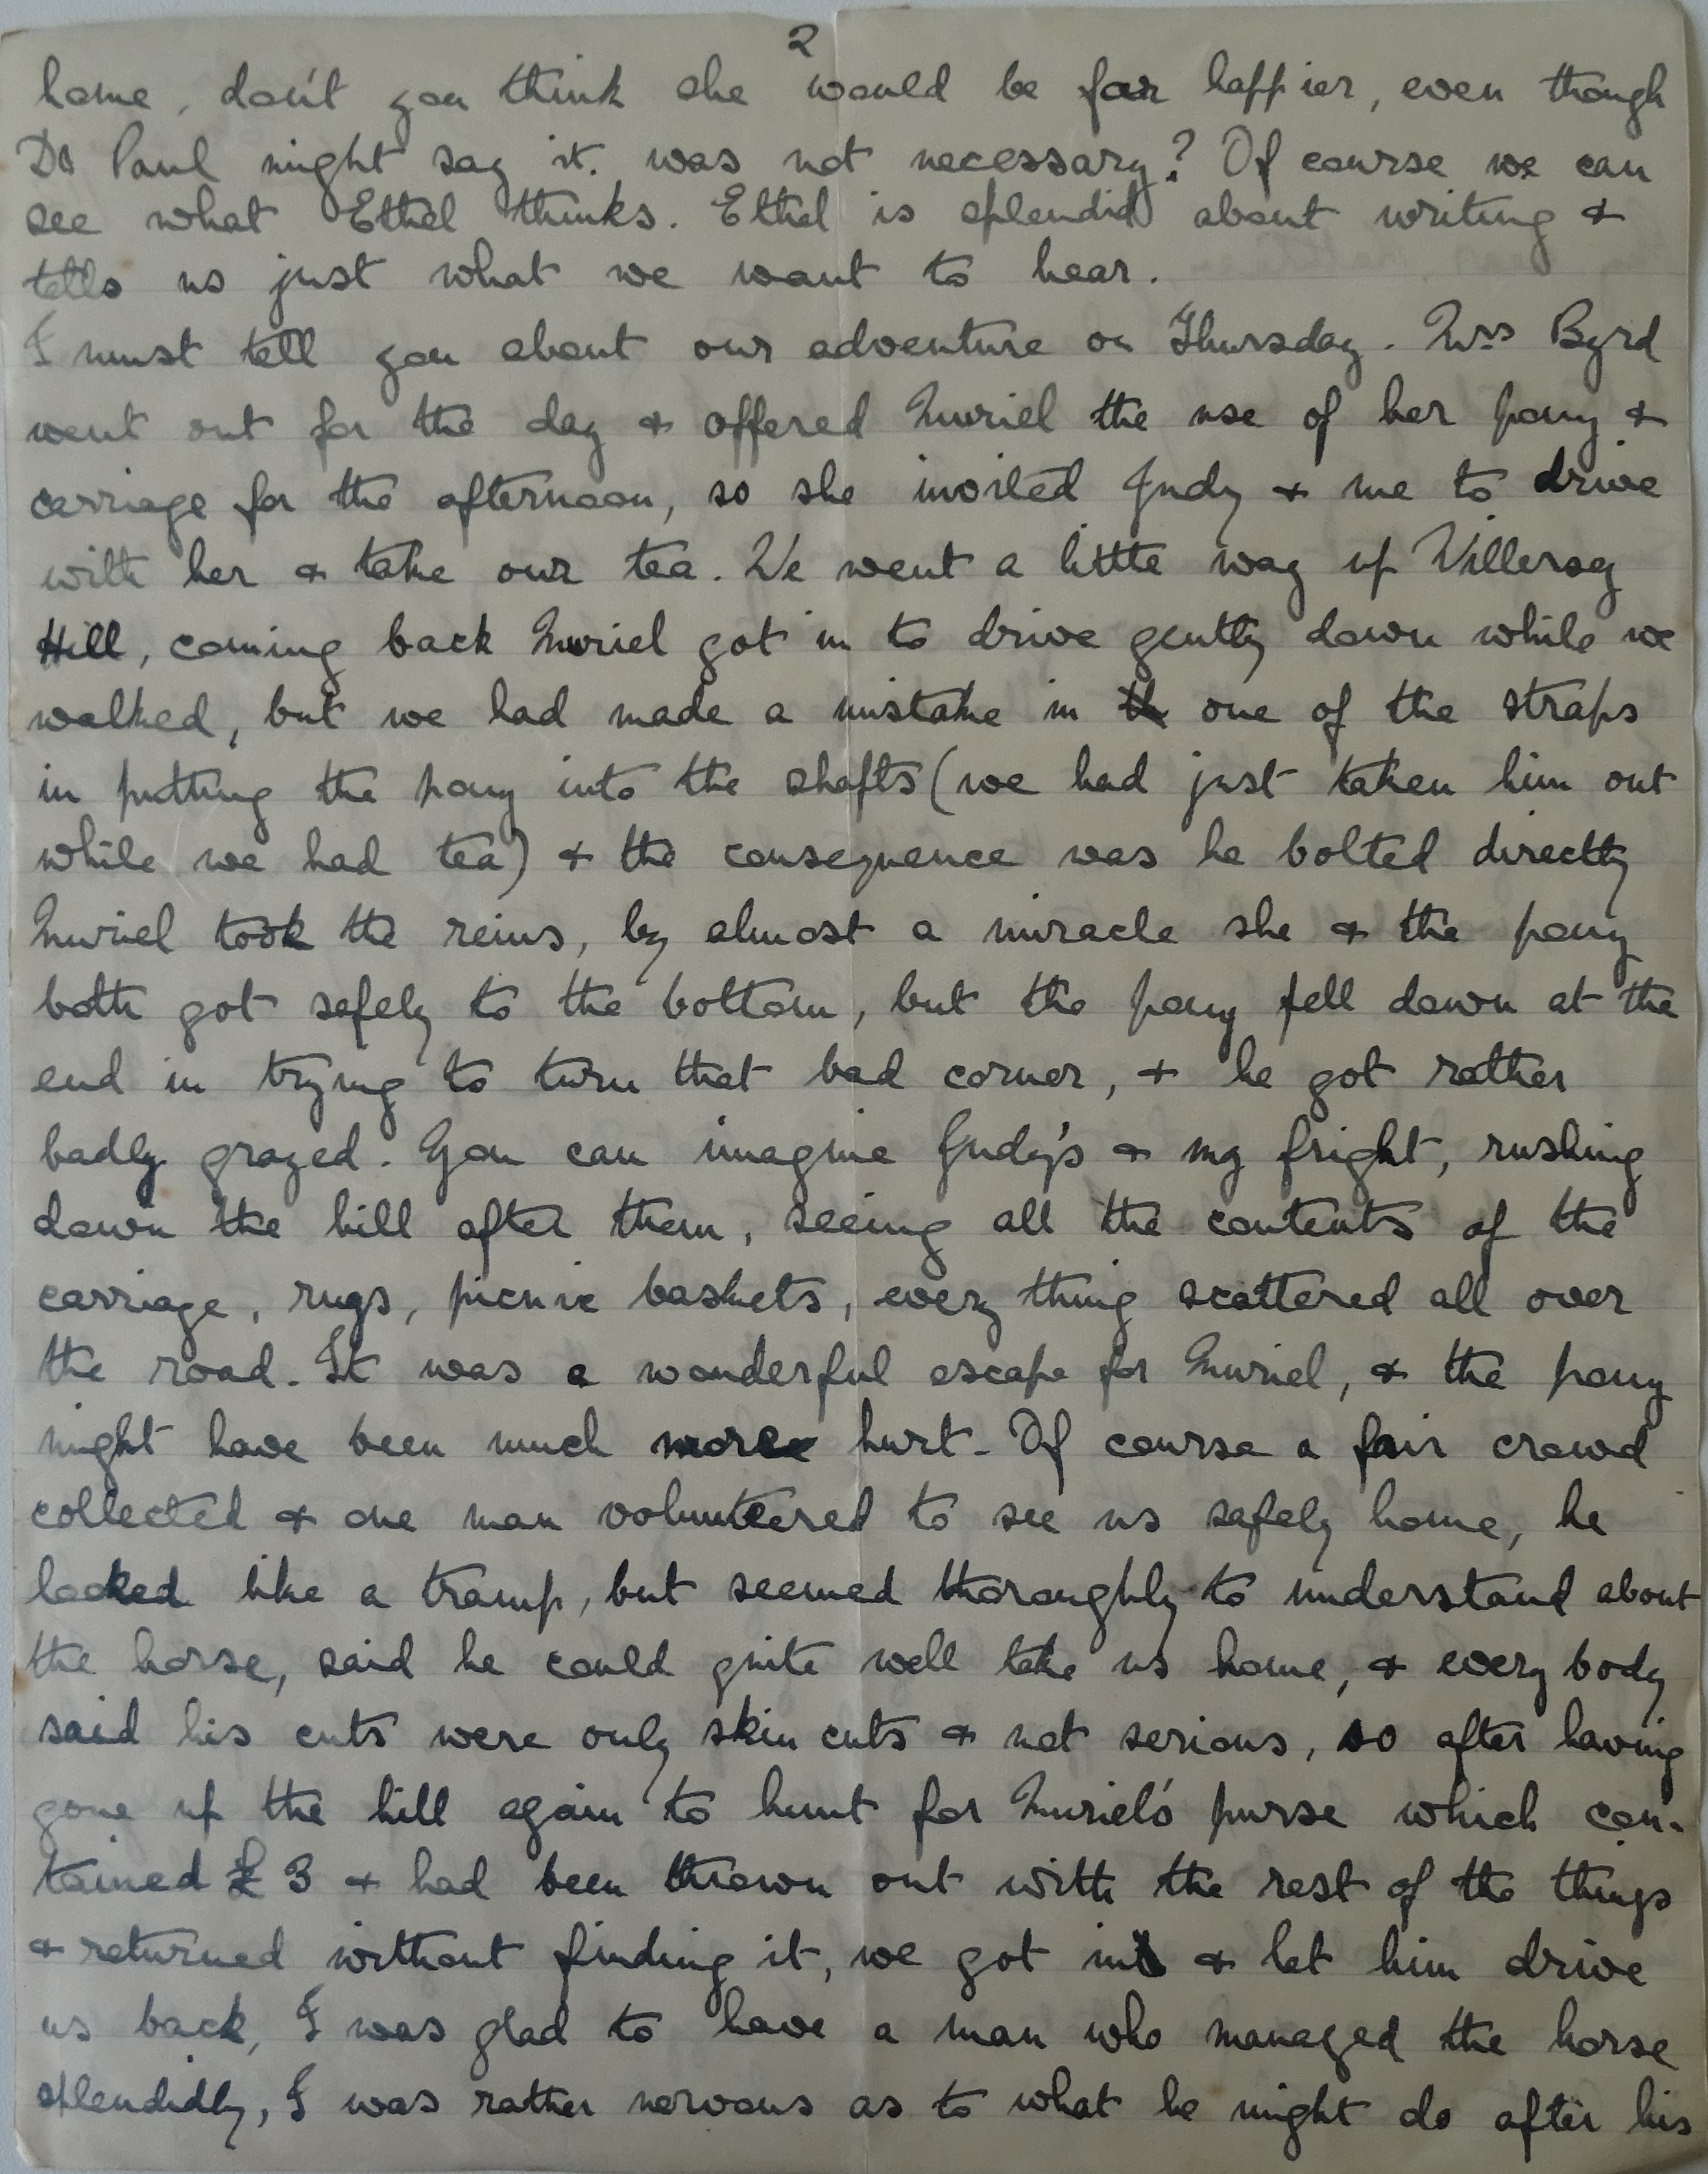 2
home, don't you think she would be far happier, even though
Dr Paul might say it was not necessary? Of course we can
see what Ethel thinks. Ethel is splendid about writing &
tells us just what we want to hear.
I must tell you about our adventure on Thursday. Mrs Byrd
went out for the day & offered Muriel the use of her pony &
carriage for the afternoon, so she invited Judy & me to drive
with her & take our tea. We went a little way up Willersey
Hill, coming back Muriel got in to drive gently down while we
walked, but we had made a mistake in th one of the straps
in putting the pony into the shafts (we had just taken him out
while we had tea) & the consequence was he bolted directly
Muriel took the reins, by almost a miracle she & the pony
both got safely to the bottom, but the pony fell down at the
end in trying to turn that bad corner, & he got rather
badly grazed. You can imagine Judy's & my fright, rushing
down the hill after them, seeing all the contents of the
carriage, rugs, picnic baskets, every thing scattered all over
the road. It was a wonderful escape for Muriel, & the pony
might have been much more hurt. Of course a fair crowd
collected & one man volunteered to see us safely home, he
looked like a tramp, but seemed thoroughly to understand about
the horse, said he could quite well take us home, & every body
said his cuts were only skin cuts & not serious, so after having
gone up the hill again to hunt for Muriel's purse which con-
tained £3 & had been thrown out with the rest of the things
& returned without finding it, we got in & let him drive
us back, I was glad to have a man who managed the horse
splendidly, I was rather nervous as to what he might do after his